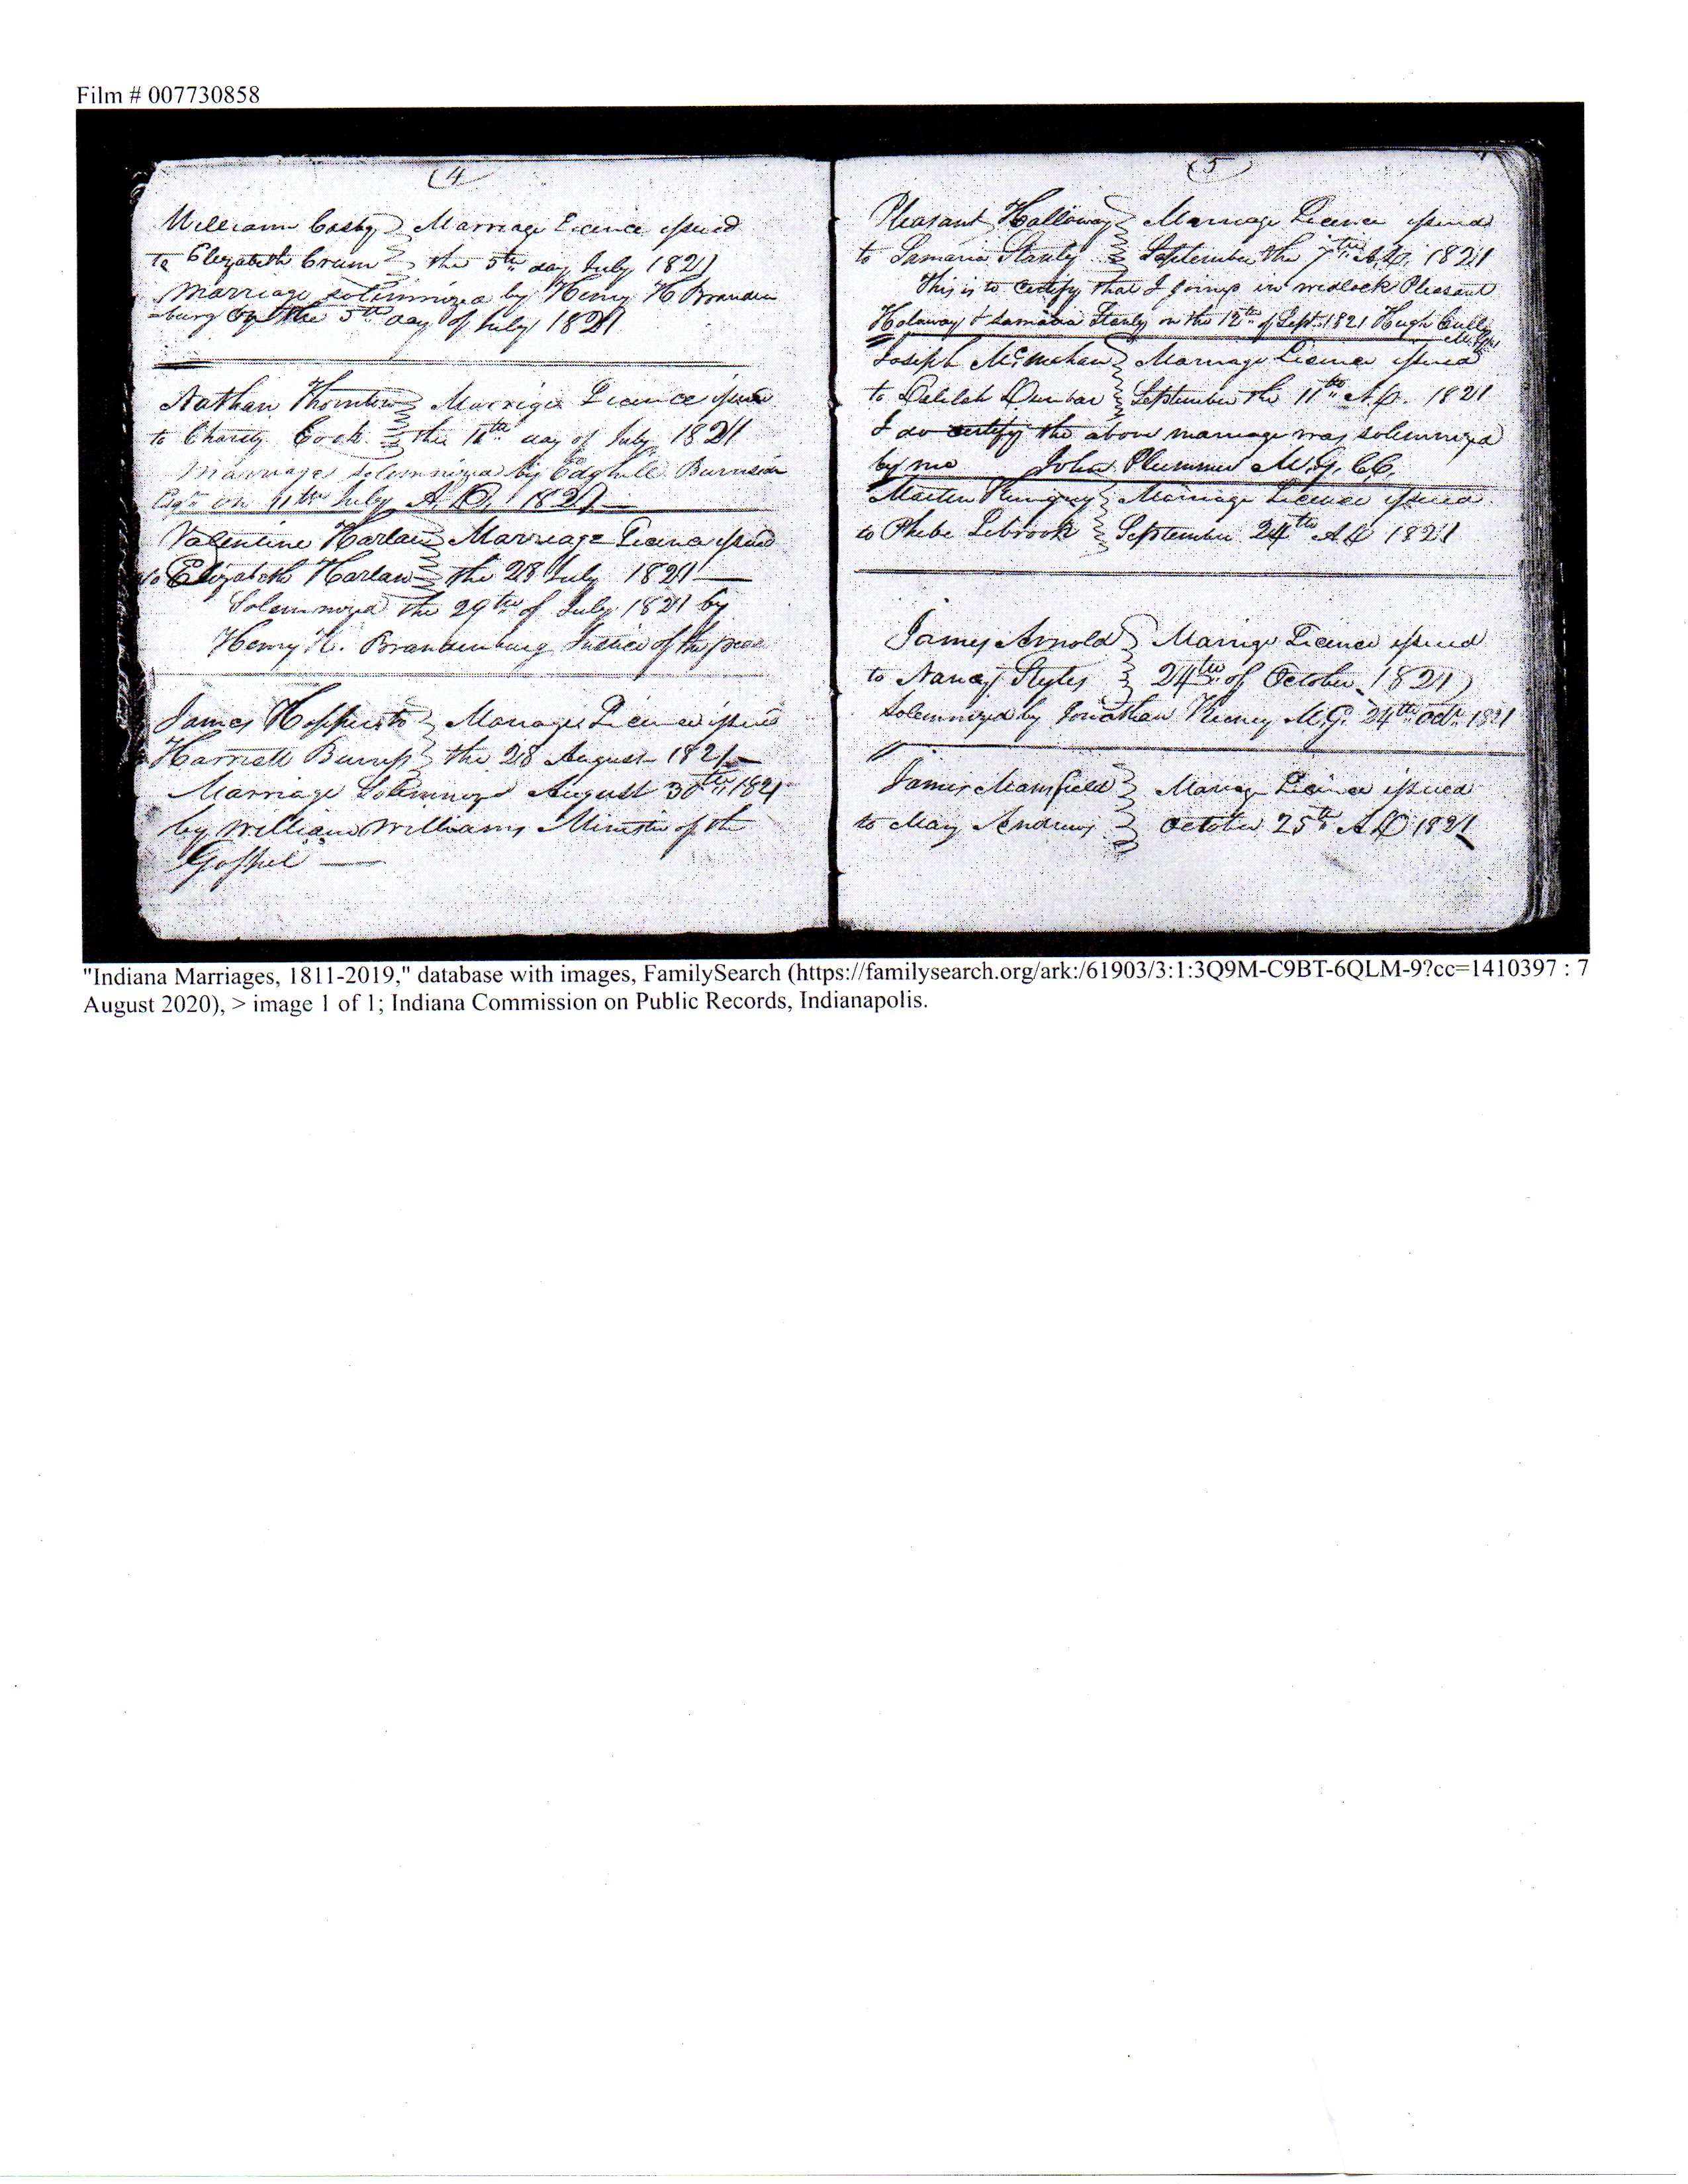 Film # 007730858
4
William Cosby Marriage Licence issued
to Elizabeth Crum the 5th day July 1821
Marriage solemnized by Henry H Branden
burg on the 5th day of July 1821
Nathan Thornton Marrige Licence issued
to Charity Cook the 10th day of July 1821
Marriage solemnized by Burnside
Esqr on 11th July A.D. 1821
Valentine Harlan Marriage Licence issued
to Elizabeth Harlan the 28 July 1821
Solemnized the 29th of July 1821 by
Henry H. Brandenburg Justice of the peace
James to Marriage Licence issued
Harriett the 28 August 1821
Marriage Solemnized August 30th 1821
by William Williams Minister of the
Gospel
5
Pleasant Halloway Marriage Licence issued
to Lamaria Stanly September the 7th A.D. 1821
This is to certify that I joined in wedlock Pleasant
Holaway & Lamaria Stanly on the 12th of Sept. 1821 Hugh
Joseph McMahan Marriage Licence issued
to Delilah Dunbar September the 11th A.D. 1821
I do certify the above marriage was solemnized
by me John Plummer M.G. C.C.
Martin Marriage Licence issued
to Phebe September 24th AD 1821
James Arnold Marrige Licence issued
to Nancy Styles 24th of October 1821
Solemnized by Jonathan Keeney M.G. 24th Octr 1821
James Mansfield Marriage Licence issued
to Mary Andrews October 25th AD 1821
"Indiana Marriages, 1811-2019," database with images, FamilySearch (https://familysearch.org/ark:/61903/3:1:3Q9M-C9BT-6QLM-9?cc=1410397 : 7
August 2020), > image 1 of 1; Indiana Commission on Public Records, Indianapolis.